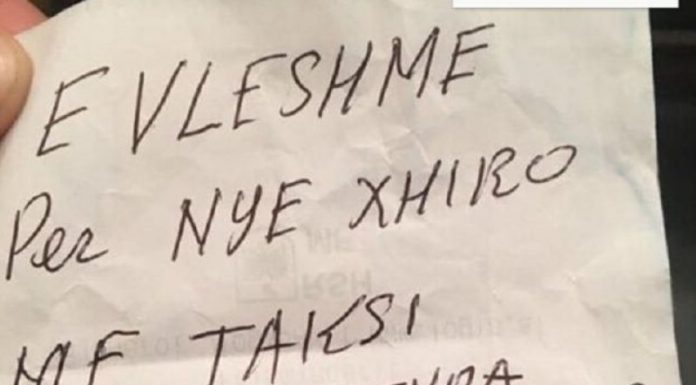 E VLESHME
Per NYE XHIRO
ME TAKSI